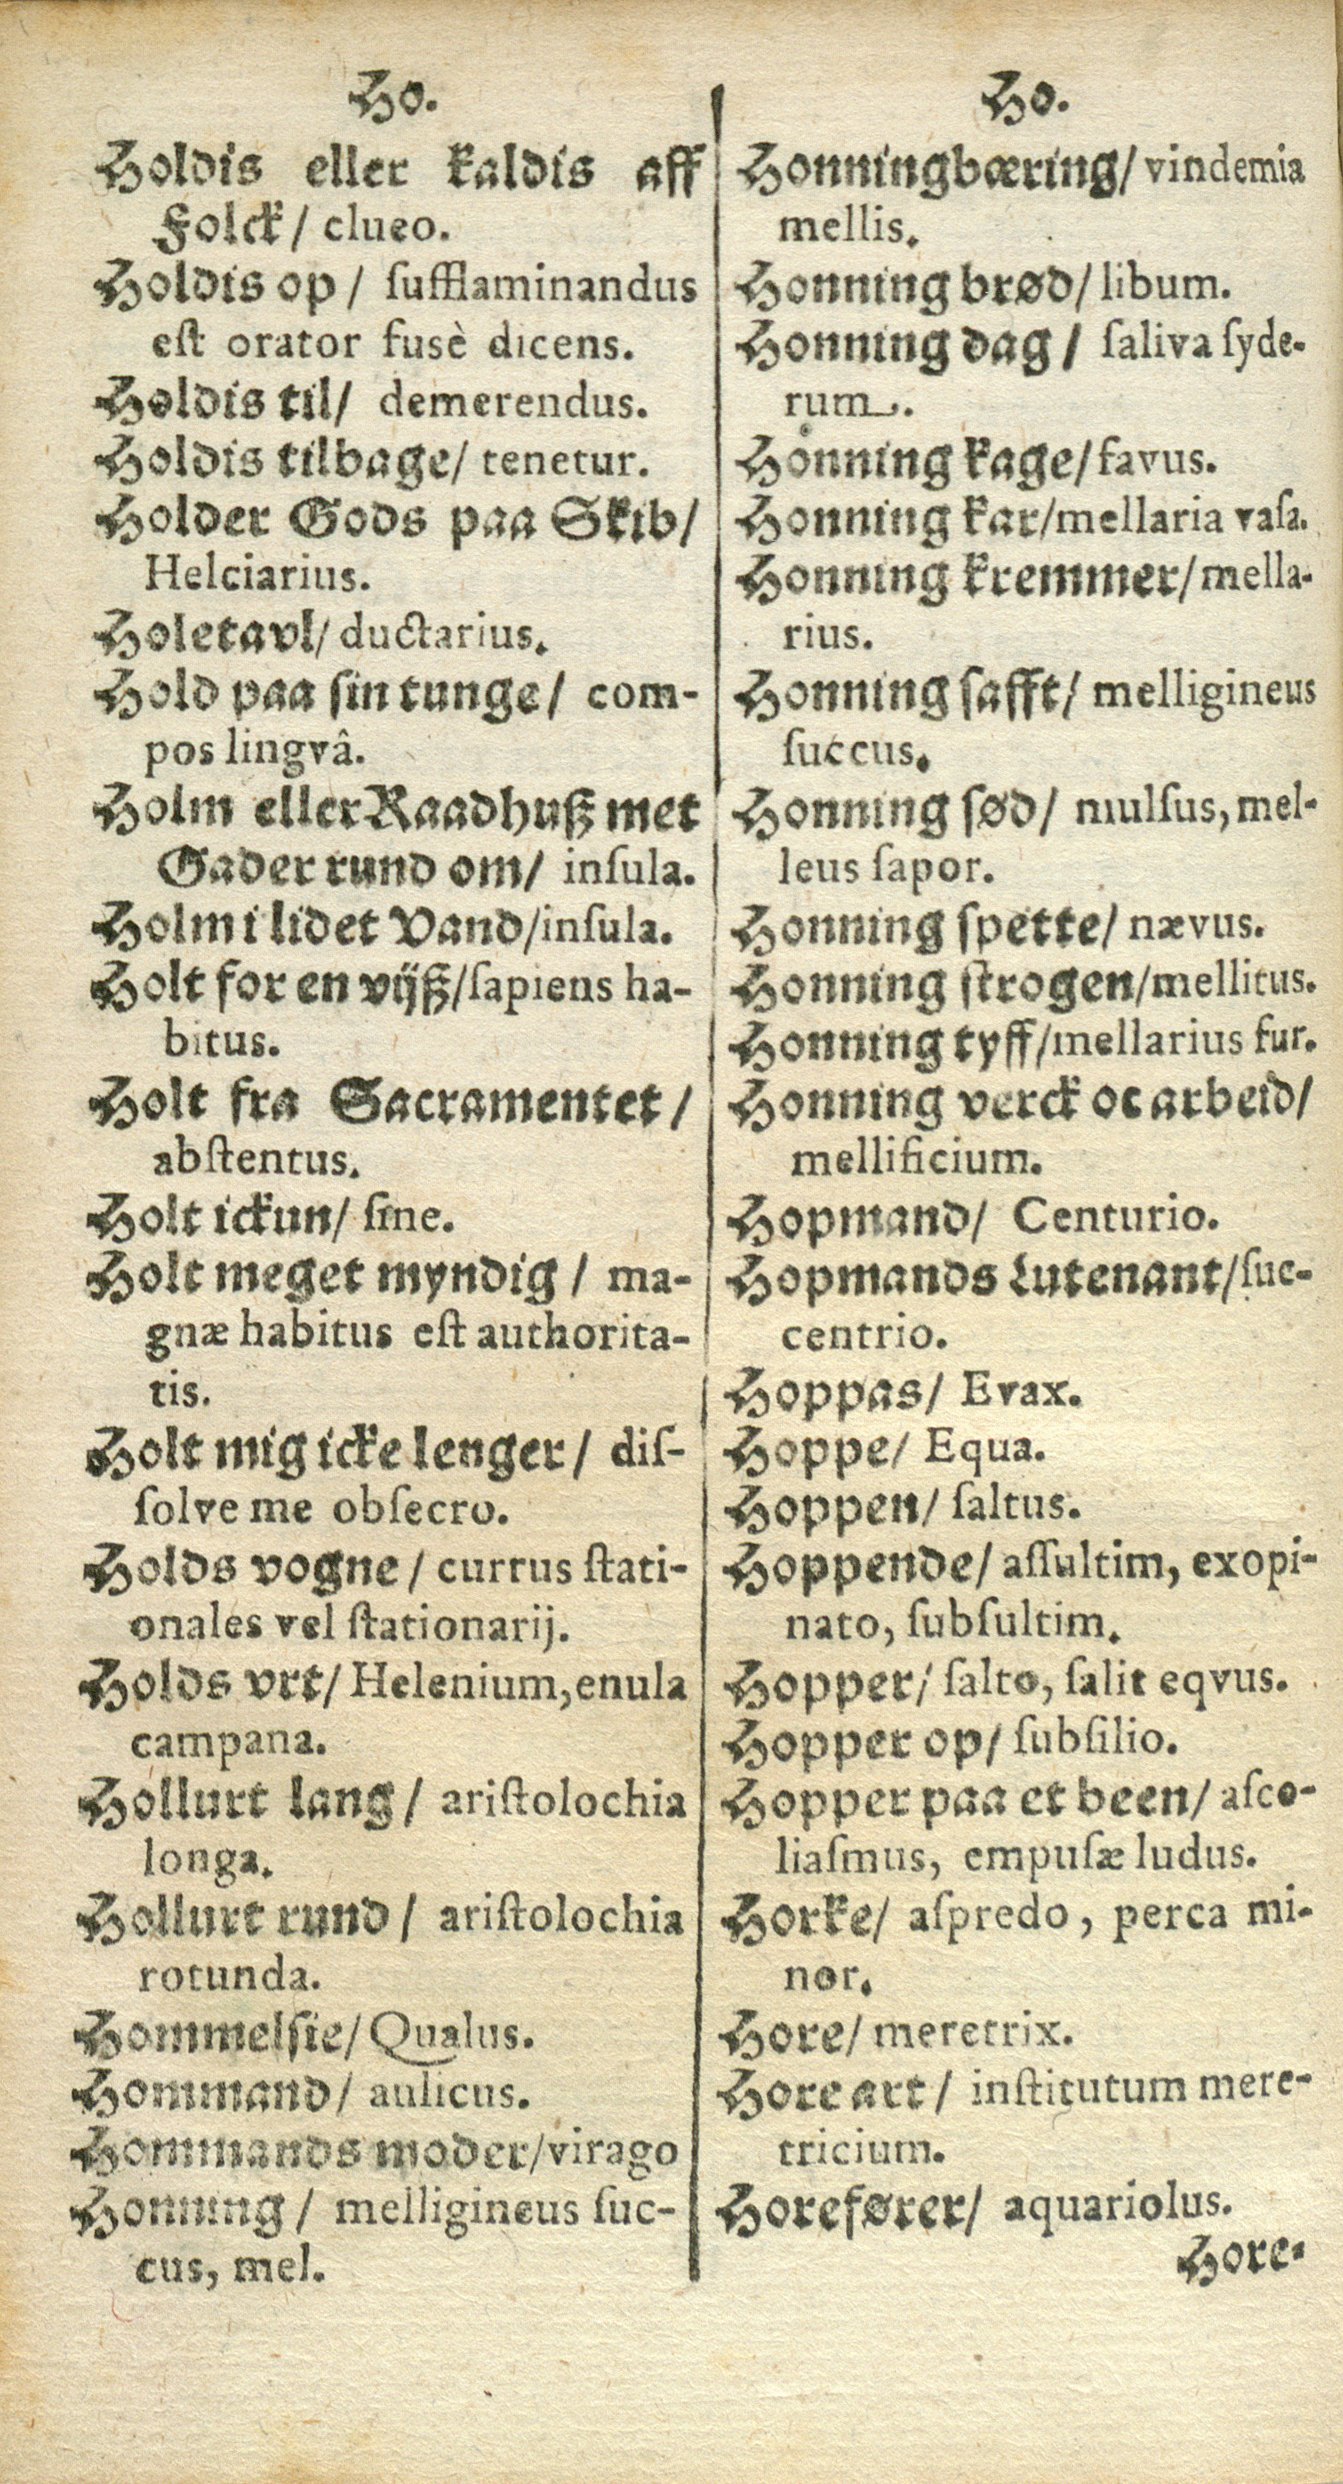 Ho.
Holdis eller kaldis aff
Folck / clueo.
Holdis op / ſufflaminandus
eſt orator fusè dicens.
Holdis til / demerendus.
Holdis tilbage / tenetur.
Holder Gods paa Skib /
Helciarius.
Holetavl / ductarius.
Hold paa ſin tunge / com-
pos lingvâ.
Holm eller Raadhuß met
Gader rund om / inſula.
Holm i lidet Vand / inſula.
Holt for en vijß / ſapiens ha-
bitus.
Holt fra Sacramentet /
abſtentus.
Holt ickun / ſine.
Holt meget myndig / ma-
gnæ habitus eſt authorita-
tis.
Holt mig icke lenger / diſ-
ſolve me obſecro.
Holds vogne / currus ſtati-
onales vel ſtationarij.
Holds vrt / Helenium, enula
campana.
Hollurt lang / ariſtolochia
longa.
Hollurt rund / ariſtolochia
rotunda.
Hommelſie / Qualus.
Hommand / aulicus.
Hommands moder / virago
Honning / melligineus ſuc-
cus, mel.
Ho.
Honningbæring / vindemia
mellis.
Honning brød / libum.
Honning dag / ſaliva ſyde-
rum.
Honning kage / favus.
Honning kar / mellaria vaſa.
Honning kremmer / mella-
rius.
Honning ſafft / melligineus
ſuccus.
Honning ſød / mulſus, mel-
leus ſapor.
Honning ſpette / nævus.
Honning ſtrogen / mellitus.
Honning tyff / mellarius fur.
Honning verck oc arbeid /
mellificium.
Hopmand / Centurio.
Hopmands Lutenant / ſuc-
centrio.
Hoppas / Evax.
Hoppe / Equa.
Hoppen / ſaltus.
Hoppende / aſſultim, exopi-
nato, ſubſultim.
Hopper / ſalto, ſalit eqvus.
Hopper op / ſubſilio.
Hopper paa et been / aſco-
liaſmus, empuſæ ludus.
Horke / aſpredo, perca mi-
nor.
Hore / meretrix.
Hore art / inſtitutum mere-
tricium.
Horefører / aquariolus.
Hore-